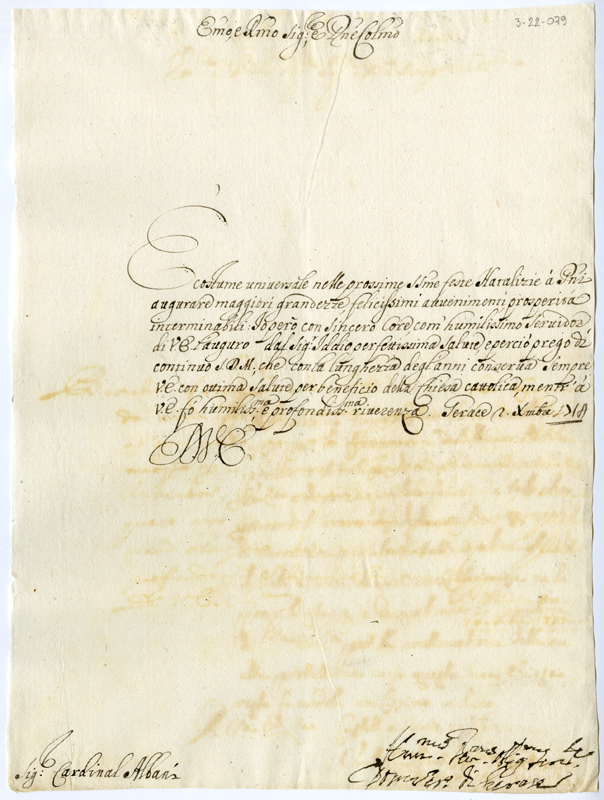 3-22-079
Emo, e Rmo Sig:, E Pne Colmo
E costume universale nelle prossime SSme feste Natalizie á Pni
augurare maggiori grandezze felicissimi advenimenti prosperità
interminabili. Io però con sincero Core com' humilissimo Servidore
di V.E. l'auguro dal Sig: Iddio perfettissima Salute, e perciò prego di
continuo S.D.M., che con la lunghezza degl'anni conserva Sempre
V.E. con ottima Salute per beneficio della Chiesa Catolica, mentre á
V.E. fó humiliss:ma e profondiss:ma riverenza. Gerace 2. Xmbre 1718
Sig: Cardinal Albani
di Gerace